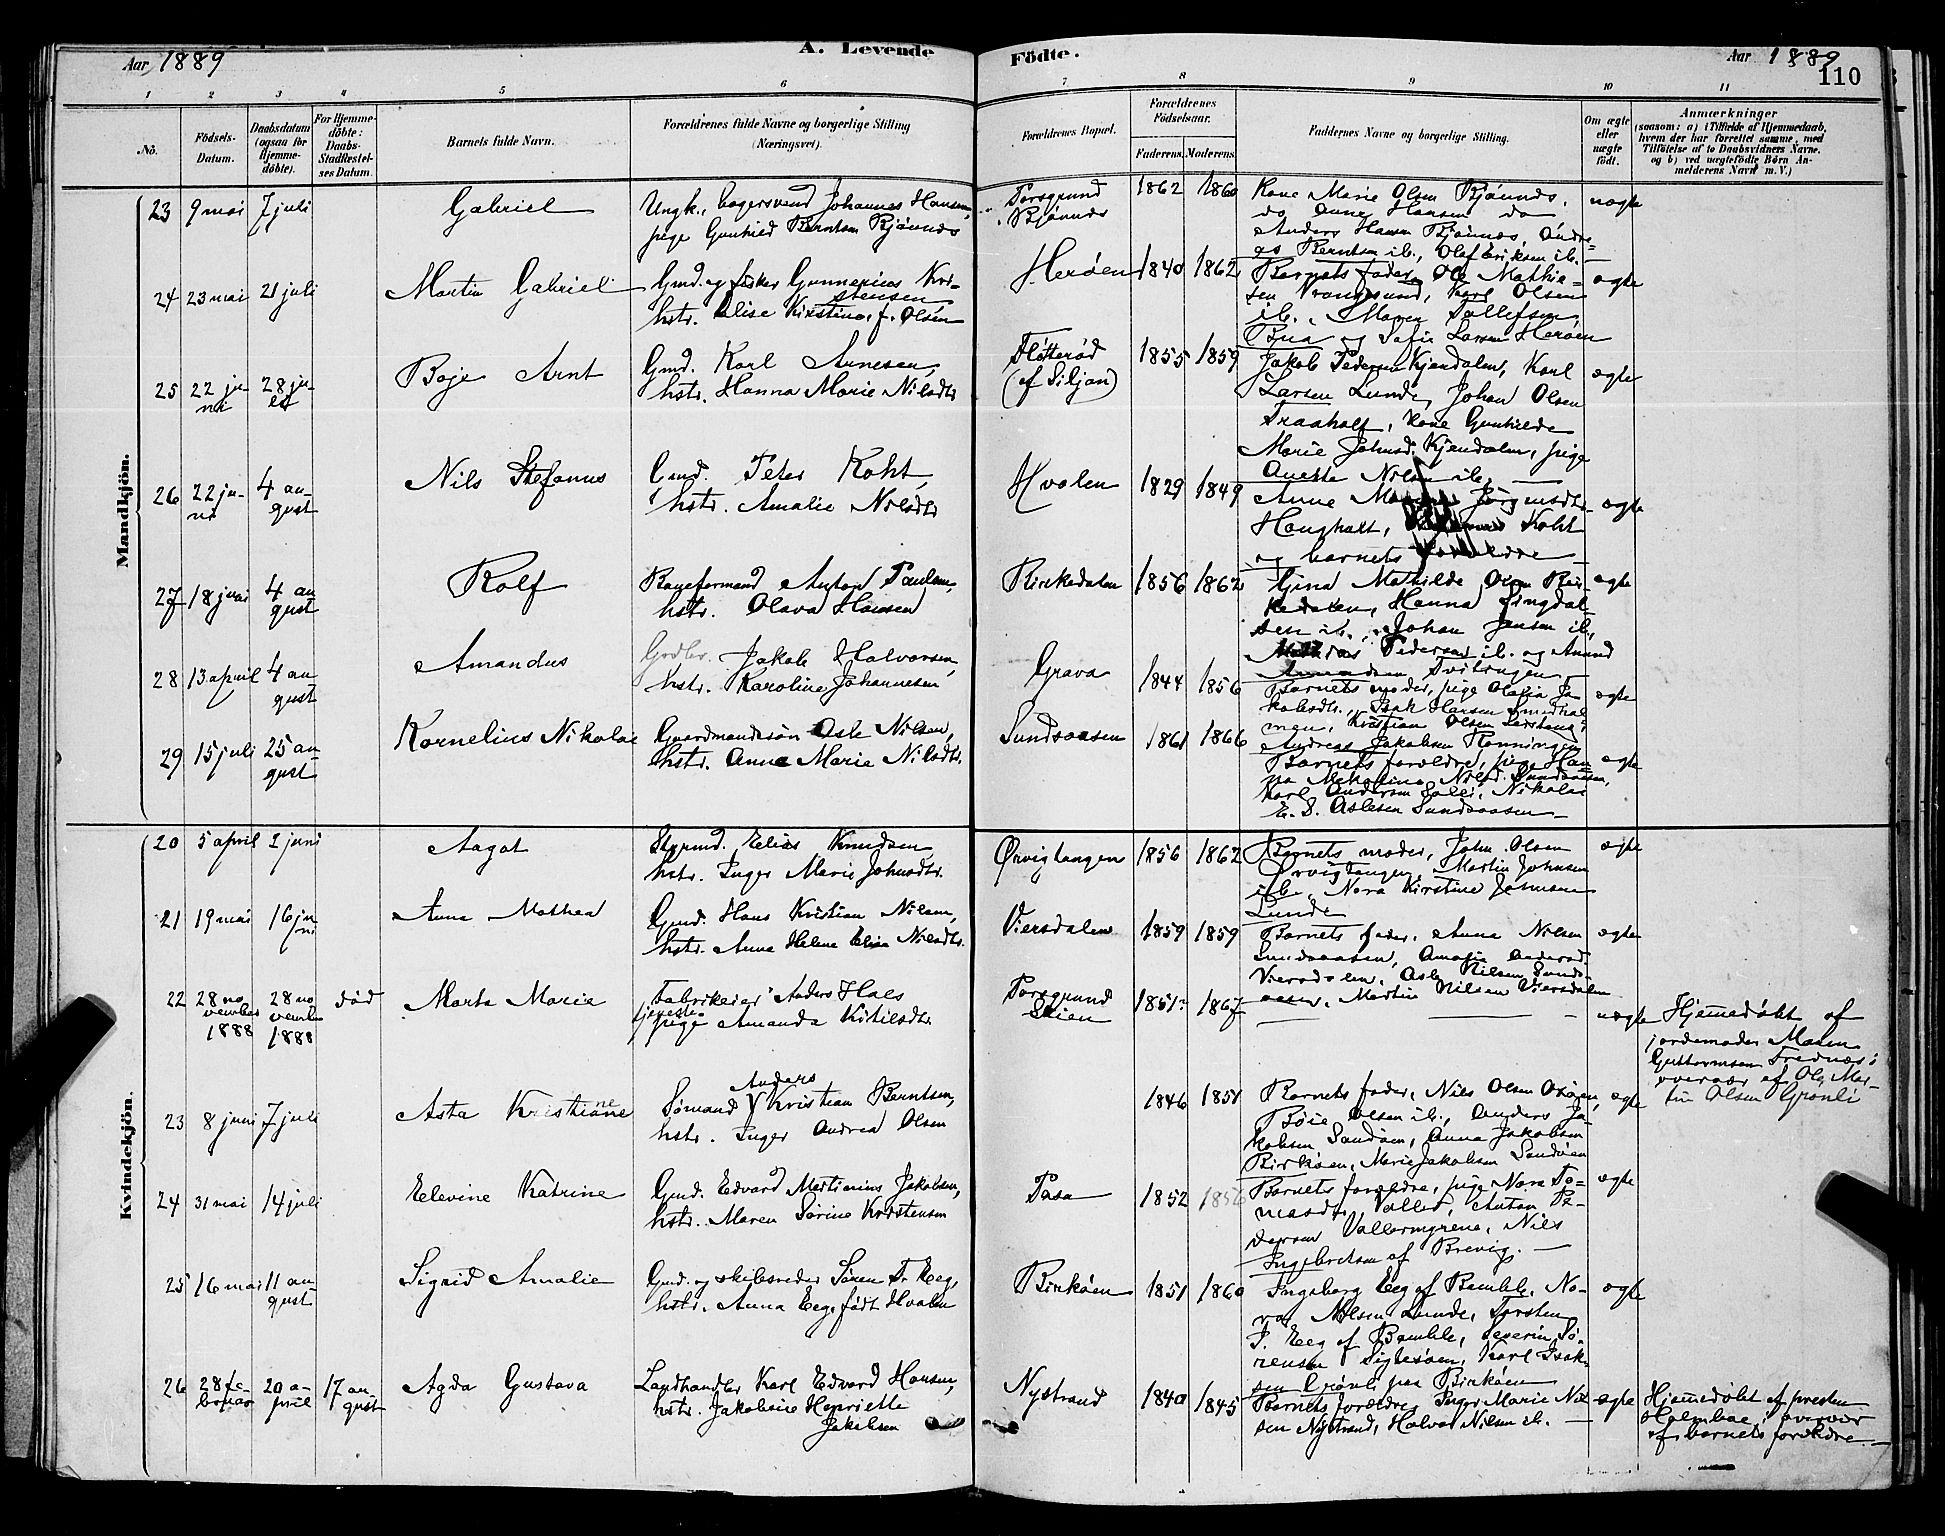 Aar 1889
A. Levende
Födte.
Aar 1889
110
1 2 3 4 5 6 7 8 9 10 11
No.
Födsels-
Datum.
Daabsdatum
(ogsaa for
Hjemme-
döbte).
For Hjemme-
döbte:
Daabs-
Stadfæstel-
ses Datum.
Barnets fulde Navn.
Forældrenes fulde Navne og borgerlige Stilling
(Næringsvei).
Forældrenes Bopæl.
Forældrenes
Födselsaar.
Faderens. Moderens.
Faddernes Navne og borgerlige Stilling.
Om ægte
eller
uægte
födt.
Anmærkninger
(saasom: a) i Tilfælde af Hjemmedaab,
hvem der har forrettet samme, med
Tilföielse af to Daabsvidners Navne.
og b) ved uægtefödte Börn An-
melderens Navn m. V.)
Mandkjön.
23 9 mai 7 juli
Gabriel
Ungk., bagersvend Johannes Hansen,
pige Gunhild Berntsen Bjønnes
Porsgrund
Bjønnes
1862 1860
Kone Marie Olsen Bjønnes,
do Anne Hansen do
Anders Hansen Bjønnes, Andre-
as Berntsen ib., Olaf Eriksen ib.
uægte
24 23 mai 21 juli
Martin Gabriel
Gmd. og fisker Gunnerius Kri-
stensen
hstr. Elise Kirstine, f. Olsen
Herøen
1840 1862
Barnets fader, Ole Mathie-
sen Vrangesund, Karl Olsen
ib., Maren Tollefsen
Bua og Sofie Larsen Herøen
ægte
25 22 ju-
ni
28 ju-
li
Boje Arnt
Gmd. Karl Arnesen,
hstr. Hanna Marie Nilsdtr.
Fløtterød
(af Siljan)
1855 1859
Jakob Pedersen Kjendalen, Karl
Larsen Lunde, Johan Olsen
Traaholt, kone Gunhilde
Marie Johnsd. Kjendalen, pige
Anette Nilsen ib.
ægte
26 22 ju-
ni
4 au-
gust
Nils Stefanus
Gmd. Peter Koht,
hstr. Amalie Nilsdtr.
Hvalen
1829 1849
Anne Jørgensdtr.
Haugholt, Koht
og barnets forældre
ægte
27 18 juni 4 au-
gust
Rolf
Baneformand Anton Paulsen,
hstr. Olava Hansen
Birkedalen
1856 1862
Gina Mathilde Olsen Bir-
kedalen, Hanna Lingdal-
sen ib., Johan Jensen ib.,
Mathias Pedersen ib. og Amund
Amundsen Tvitingen
ægte
28 13 april 4 au-
gust
Amandus
Grdbr. Jakob Halvorsen,
hstr. Karoline Johannesen
Grava
1844 1856
Barnets moder, pige Olafia Ja-
kobsdtr., Isak Hansen
Kristian Olsen
Andreas Jakobsen Rønningen
ægte
29 15 juli 25 au-
gust
Kornelius Nikolai
Gaardmandssøn Asle Nilsen,
hstr. Anne Marie Nilsdtr.
Sundsaasen
1861 1866
Barnets forældre, pige Han-
na Nikoline Nilsd. Sundsaasen,
Karl Andersen Solli, Nikolai
E. S. Aslesen Sundsaasen
ægte
Kvindekjön.
20 5 april 2 juni
Aagot
Styrmd. Elias Knudsen
hstr. Inger Marie Johnsdtr.
Ørvigtangen
1856 1862
Barnets moder, John Olsen
Ørvigtangen, Martin Johnsen
ib., Nora Kirstine Johnsen
Lunde
ægte
21 19 mai 16 ju-
ni
Anna Mathea
Gmd. Hans Kristian Nilsen,
hstr. Anne Helene Elise Nilsdtr.
Viersdalen
1859 1859
Barnets fader, Anna Nilsen
Sundsaasen, Amalie Andersd.
Viersdalen, Asle Nilsen Sunds-
aasen, Martin Nilsen Viersdalen
ægte
22 28 no-
vember
1888
28 no-
vember
1888
død
Marta Marie
Fabrikeier Anders Haes
tjeneste-
pige Amanda Kittilsdtr.
Porsgrund
Skien
1851? 1867
uægte
Hjemmedøbt af
jordemoder Maren
Guttormsen Frednæs i
overvær af Ole Mar-
tin Olsen Grønli
23 8 juni 7 juli
Asta Kristiane
Anders
Sømand Kristian Berntsen,
hstr. Inger Andrea Olsen
1846 1851
Barnets fader, Nils Olsen Oxøen,
Bøie Olsen ib., Anders Ja-
kobsen Sandøen, Anna Jakobsen
Birkøen, Marie Jakobsen Sandøen
ægte
24 31 mai 14 juli
Elevine Katrine
Gmd. Edvard Martinius Jakobsen,
hstr. Maren Sørine Kristensen
Pasa
1852 1856
Barnets forældre, pige Nora To-
masdtr. Valler, Anton Pe-
dersen Vallermyrene, Nils
Ingebretsen af Brevig.
ægte
25 16 mai 11 au-
gust
Sigrid Amalie
Gmd. og skibsreder Søren T. Eeg,
hstr. Anna Eeg, født Hvalen
Birkøen
1851 1860
Ingeborg Eeg af Bamble, No-
ra Nilsen Lunde, Torsten
P. Eeg af Bamble, Severin Sø-
rensen Sigtesøen, Karl Isak-
sen Grønli paa Birkøen
ægte
26 28 fe-
bruar
20 a-
pril
17 au-
gust
Agda Gustava
Landhandler Karl Edvard Hansen,
hstr. Jakobine Henriette
Jakobsen
Nystrand
1840 1845
Barnets forældre, Inger Marie Nil-
sen Nystrand, Halvor Nilsen ib.
ægte
Hjemmedøbt af presten
Holmboe i overvær
af barnets forældre.